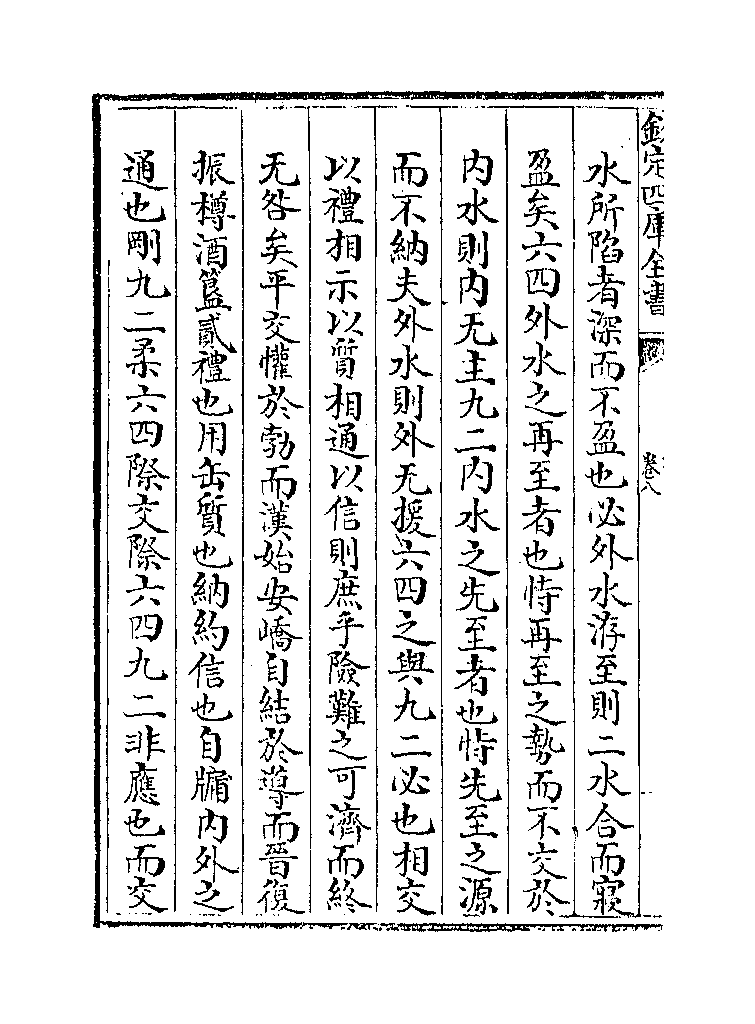 欽定四庫全書
卷八
水所陷者深而不盈也必外水洊至則二水合而寖
盈矣六四外水之再至者也恃再至之勢而不交於
内水則内无主九二内水之先至者也恃先至之源
而不納夫外水則外无援六四之與九二必也相交
以禮相示以質相通以信則庶乎險難之可濟而終
无咎矣平交懽於勃而漢始安嶠自結於導而晉復
振樽酒簋貳禮也用缶質也納約信也自牖内外之
通也剛九二柔六四際交際六四九二非應也而交